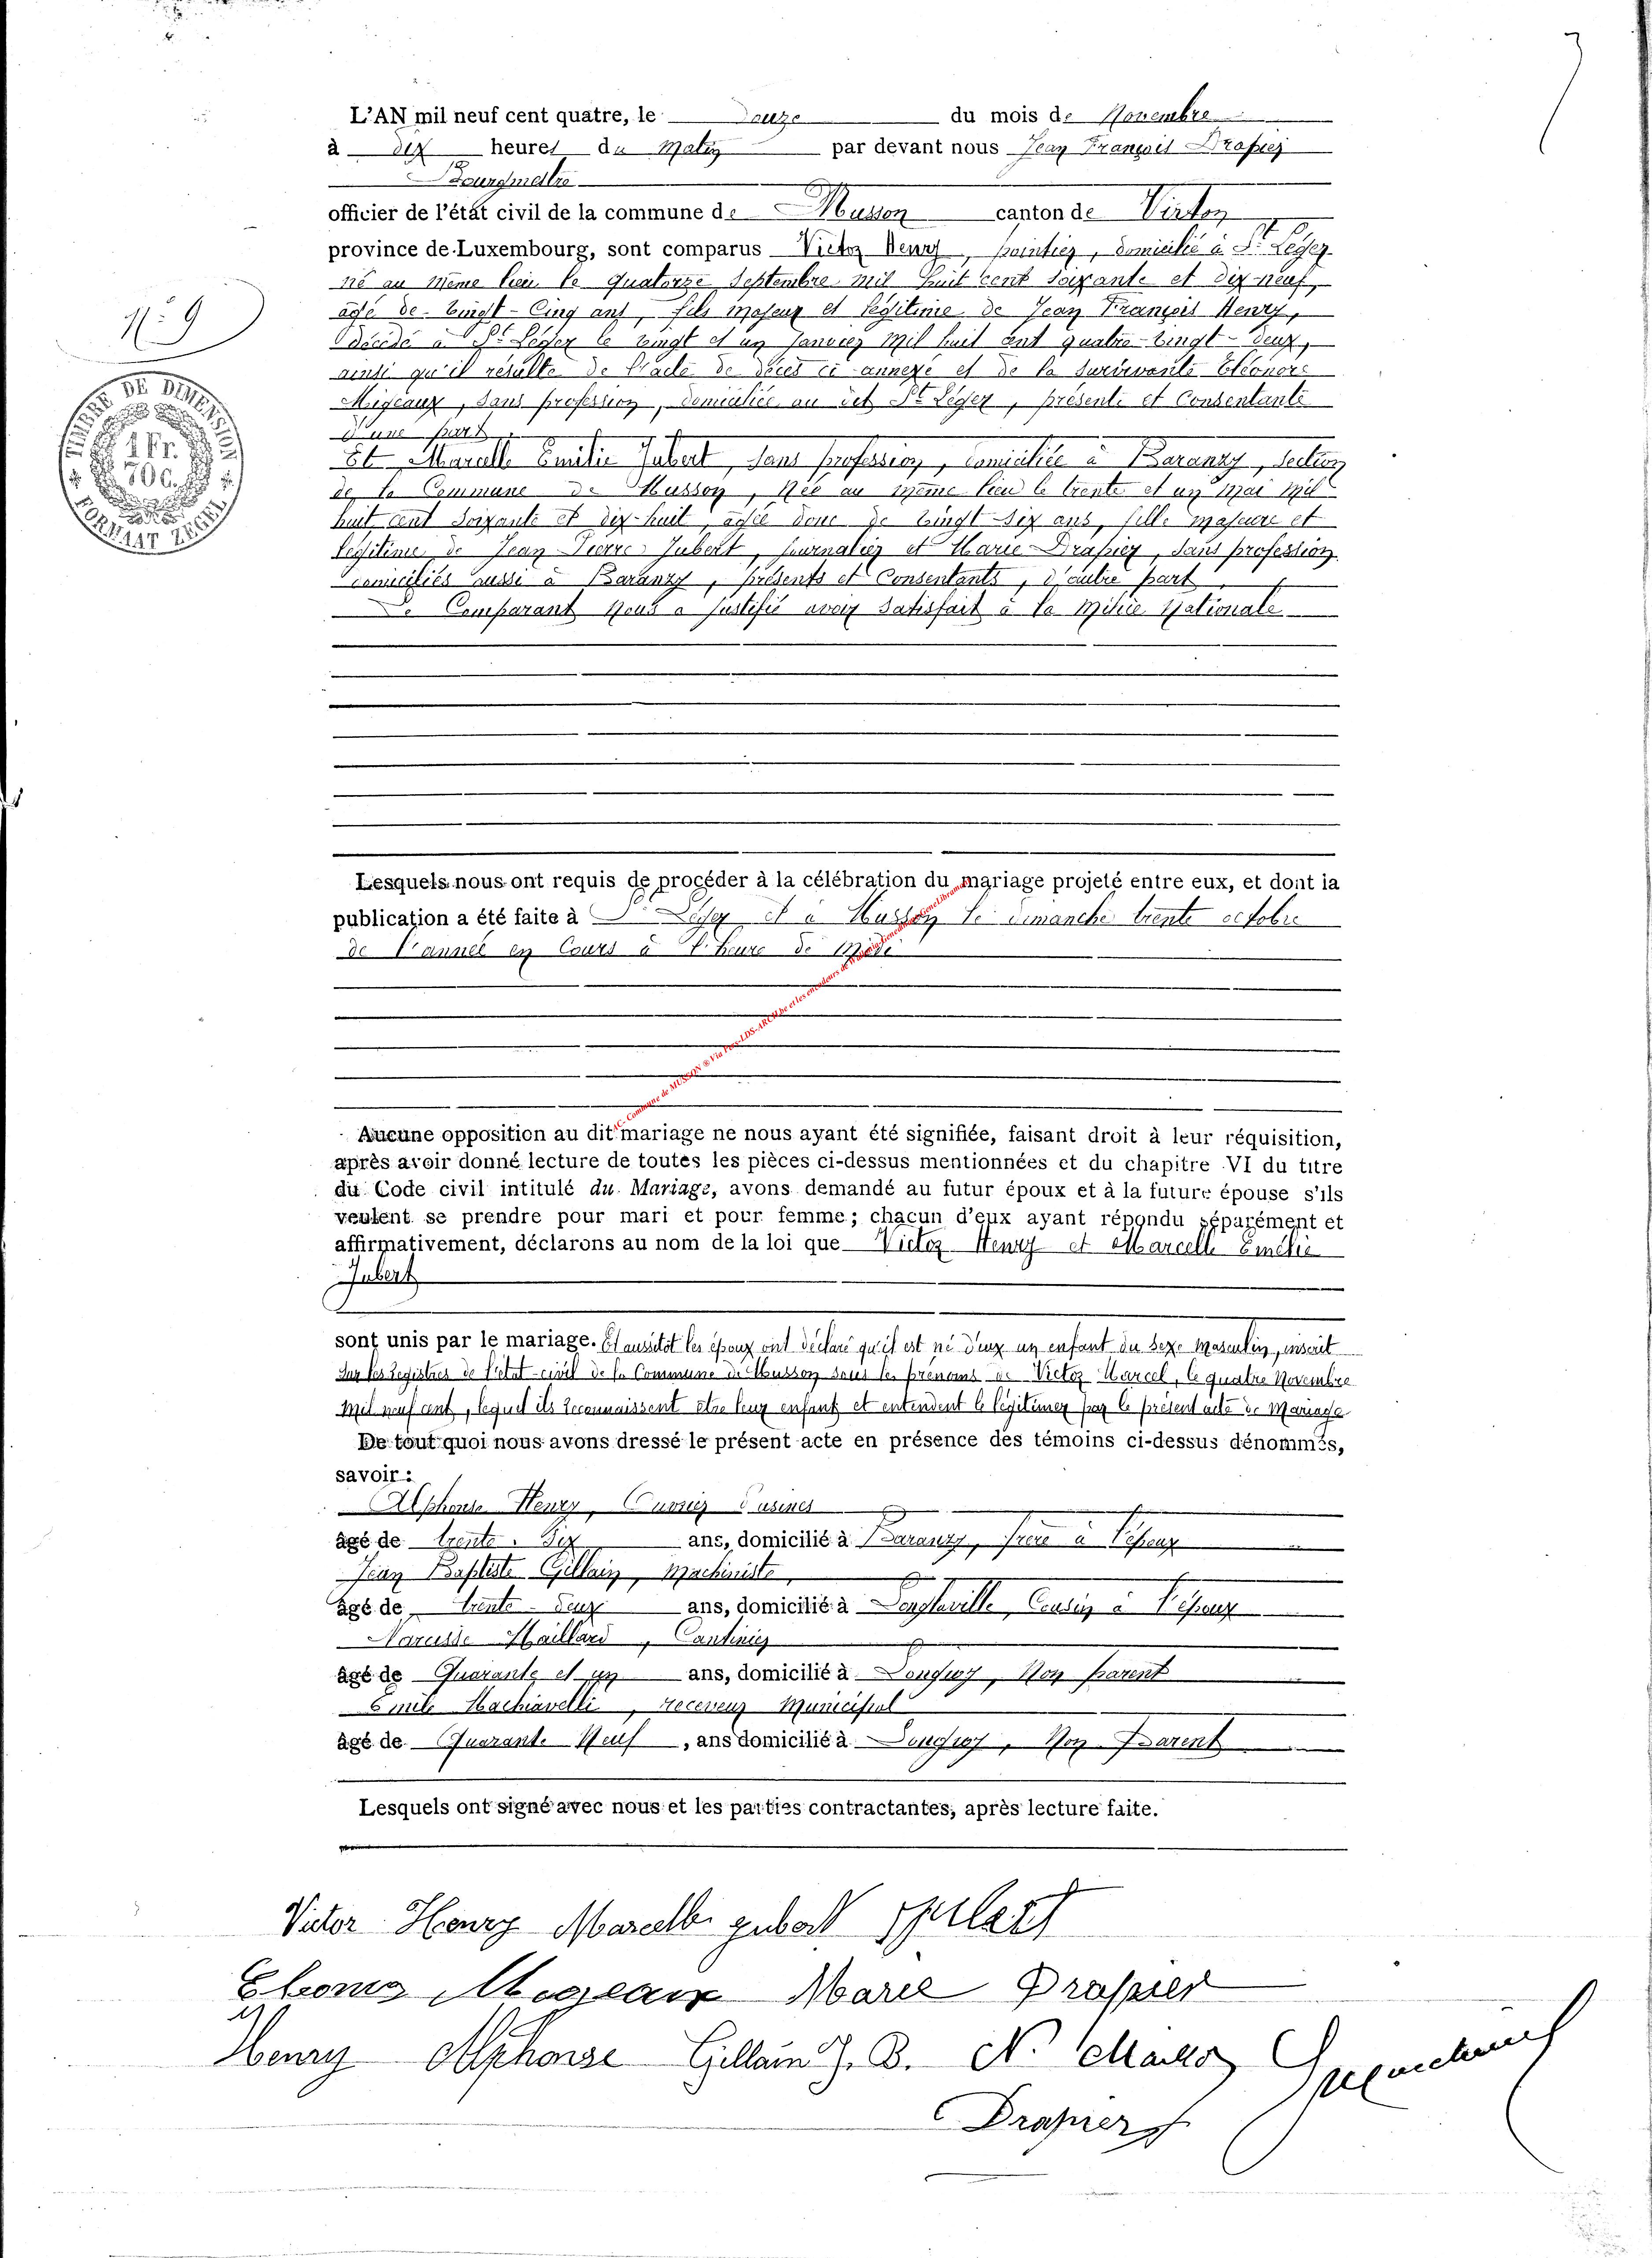 L'AN mil neuf cent quatre, le douze du mois de Novembre
à dix heures du Matin par devant nous Jean François Drapier
Bourgmestre
officier de l'état civil de la commune de Musson canton de Virton
province de Luxembourg, sont comparus Victor Henry, pointier, domicilié à St Léger
né au même lieu le quatorze Septembre mil huit cent soixante et dix-neuf,
âgé de vingt-Cinq ans, fils majeur et légitime de Jean François Henry,
décédé à St Léger le vingt et un Janvier mil huit cent quatre-vingt-deux,
ainsi qu'il résulte de l'acte de décès ci-annexé et de la survivante Eléonore
Migeaux, sans profession, domiciliée au dit St Léger, présente et consentante
d'une part.
N: 9
TIMBRE DE DIMENSION
1 Fr.
70 C.
FORMAAT ZEGEL
Et Marcelle Emilie Jubert, sans profession, domiciliée à Baranzy, section
de la Commune de Musson, née au même lieu le trente et un Mai mil
huit cent soixante et dix-huit, âgée donc de vingt-six ans, fille majeure et
légitime de Jean Pierre Jubert, journalier et Marie Drapier, sans profession
domiciliés aussi à Baranzy, présents et consentants, d'autre part
Le Comparant Nous a justifié avoir satisfait à la Milice Nationale
Lesquels nous ont requis de procéder à la célébration du mariage projeté entre eux, et dont la
publication a été faite à St Léger et à Musson le dimanche trente octobre
de l'année en Cours à l'heure de Midi
AC- Commune de MUSSON ® Via
Aucune opposition au dit mariage ne nous ayant été signifiée, faisant droit à leur réquisition,
après avoir donné lecture de toutes les pièces ci-dessus mentionnées et du chapitre VI du titre
du Code civil intitulé du Mariage, avons demandé au futur époux et à la future épouse s'ils
veulent se prendre pour mari et pour femme; chacun d'eux ayant répondu séparément et
affirmativement, déclarons au nom de la loi que Victor Henry et Marcelle Emilie
Jubert
sont unis par le mariage. Et aussitôt les époux ont déclaré qu'il est né d'eux un enfant du sexe masculin, inscrit
sur les registres de l'état-civil de la Commune de Musson sous les prénoms de Victor Marcel, le quatre Novembre
mil neuf cent, lequel ils reconnaissent être leur enfant et entendent le légitimer par le présent acte de Mariage
De tout quoi nous avons dressé le présent acte en présence des témoins ci-dessus dénommés,
savoir:
Alphonse Henry, Ouvrier d'usines
âgé de trente-six ans, domicilié à Baranzy, frère à l'époux
Jean Baptiste Gillain, Machiniste,
âgé de trente-deux ans, domicilié à Longlaville, Cousin à l'époux
Narcisse Maillard, Cantinier
âgé de Quarante et un ans, domicilié à Longwy, Non parent
Emile Machiavelli, receveur Municipal
âgé de Quarante Neuf, ans domicilié à Longwy, Non Parent
Lesquels ont signé avec nous et les parties contractantes, après lecture faite.
Victor Henry Marcelle jubert
Marie Drapier
Henry Alphonse Gillain J. B. N.
Drapier